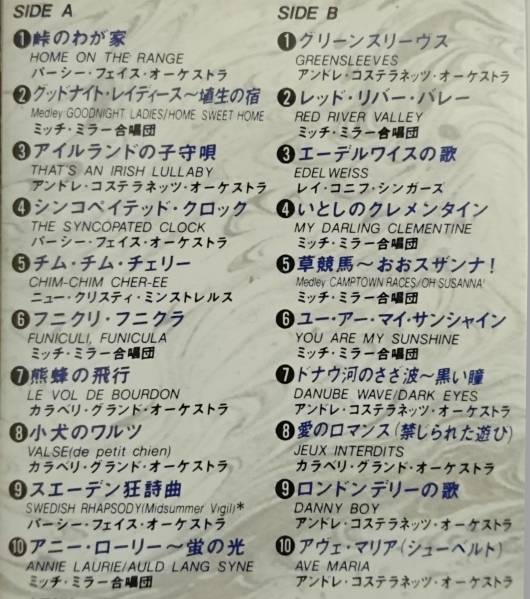 SIDE A
❶峠のわが家
HOME ON THE RANGE
パーシー・フェイス・オーケストラ
❷グッドナイト・レイディース〜埴生の宿
Medley GOODNIGHT LADIES/HOME SWEET HOME
ミッチ・ミラー合唱団
❸アイルランドの子守唄
THAT'S AN IRISH LULLABY
アンドレ・コステラネッツ・オーケストラ
❹シンコペイテッド・クロック
THE SYNCOPATED CLOCK
パーシー・フェイス・オーケストラ
❺チム・チム・チェリー
CHIM-CHIM CHER-EE
ニュー・クリスティ・ミンストレルス
❻フニクリ・フニクラ
FUNICULI, FUNICULA
ミッチ・ミラー合唱団
❼熊蜂の飛行
LE VOL DE BOURDON
カラベリ・グランド・オーケストラ
❽小犬のワルツ
VALSE(de petit chien)
カラベリ・グランド・オーケストラ
❾スエーデン狂詩曲
SWEDISH RHAPSODY(Midsummer Vigil)*
パーシー・フェイス・オーケストラ
❿アニー・ローリー〜蛍の光
ANNIE LAURIE/AULD LANG SYNE
ミッチ・ミラー合唱団
SIDE B
❶グリーンスリーヴス
GREENSLEEVES
アンドレ・コステラネッツ・オーケストラ
❷レッド・リバー・バレー
RED RIVER VALLEY
ミッチ・ミラー合唱団
❸エーデルワイスの歌
EDELWEISS
レイ・コニフ・シンガーズ
❹いとしのクレメンタイン
MY DARLING CLEMENTINE
ミッチ・ミラー合唱団
❺草競馬〜おおスザンナ!
Medley CAMPTOWN RACES/OH SUSANNA!
ミッチ・ミラー合唱団
❻ユー・アー・マイ・サンシャイン
YOU ARE MY SUNSHINE
ミッチ・ミラー合唱団
❼ドナウ河のさざ波〜黒い瞳
DANUBE WAVE/DARK EYES
アンドレ・コステラネッツ・オーケストラ
❽愛のロマンス(禁じられた遊び)
JEUX INTERDITS
カラベリ・グランド・オーケストラ
❾ロンドンデリーの歌
DANNY BOY
アンドレ・コステラネッツ・オーケストラ
❿アヴェ・マリア(シューベルト)
AVE MARIA
アンドレ・コステラネッツ・オーケストラ